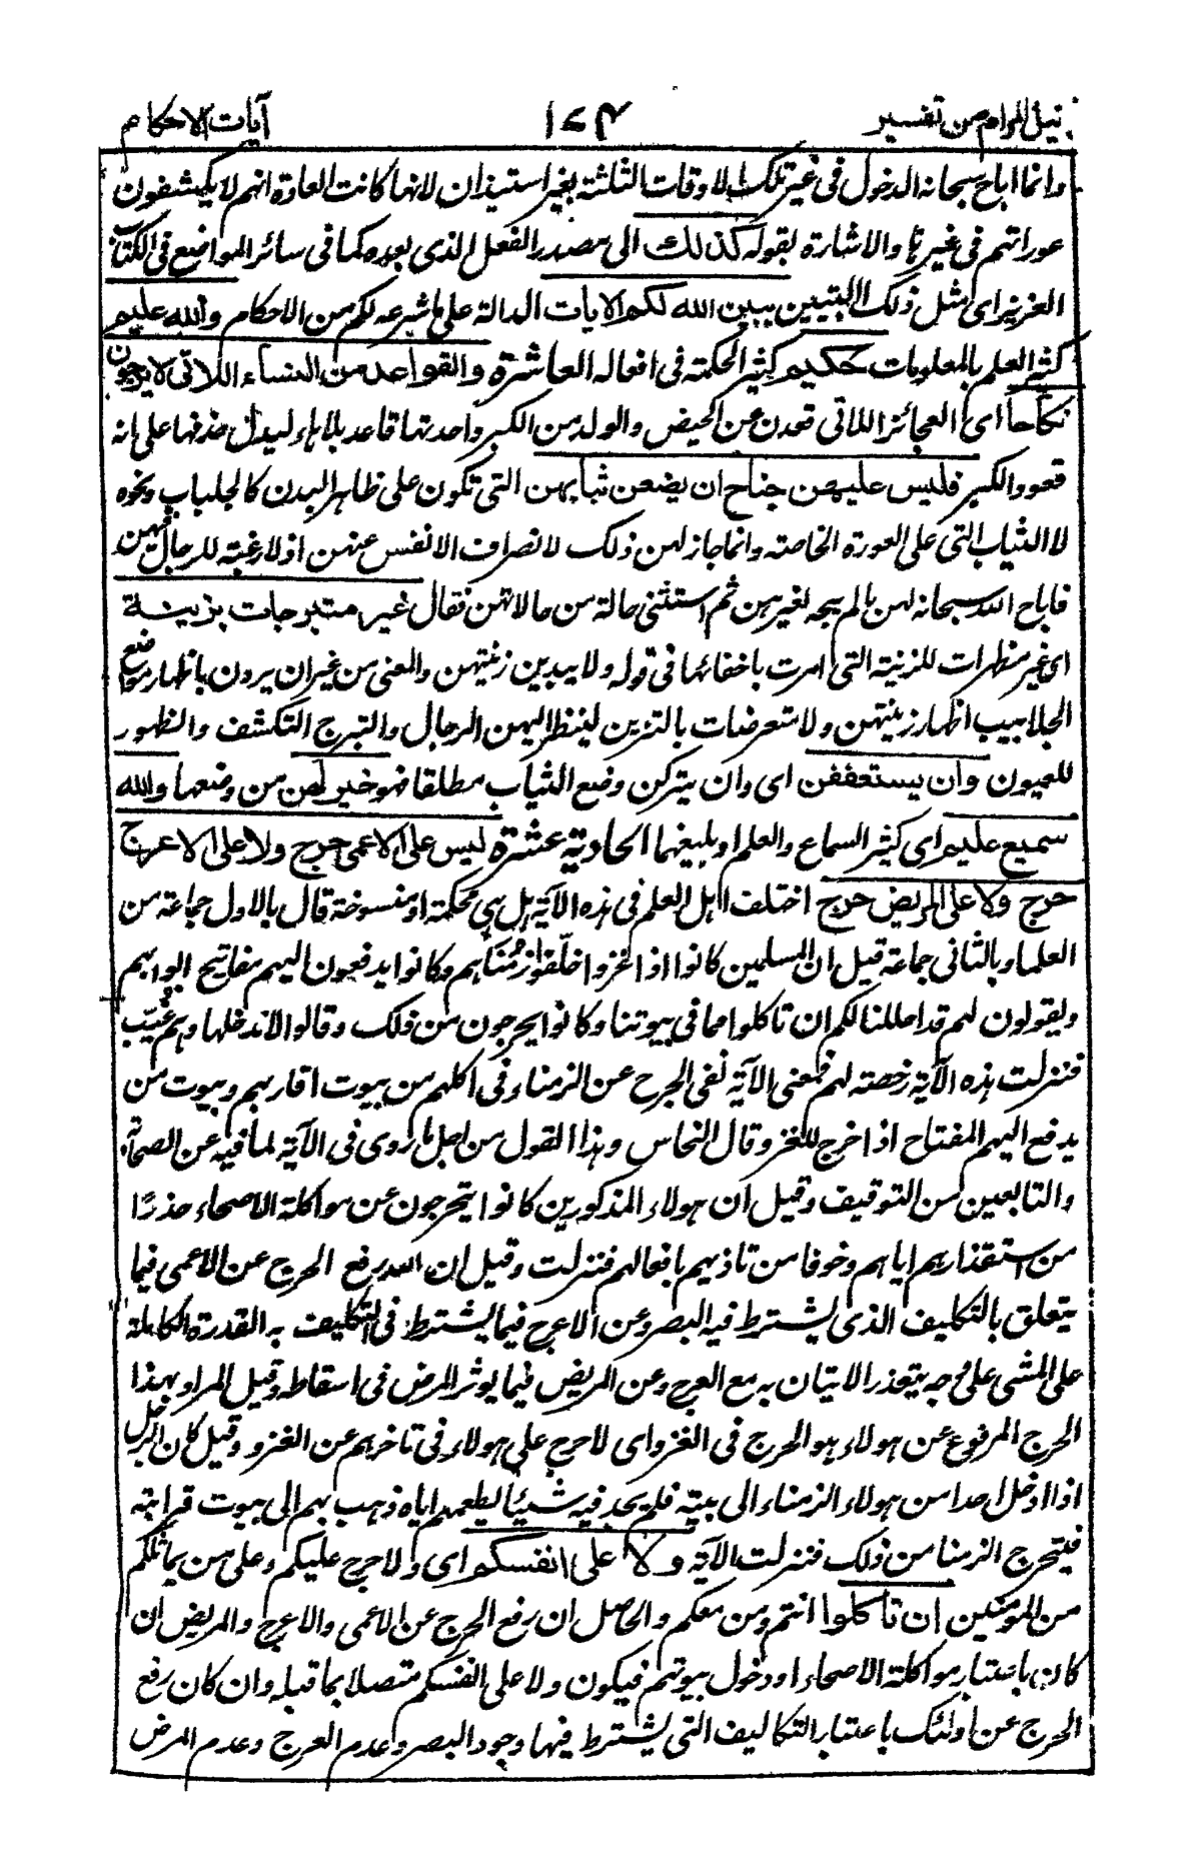 نيل المرام من تفسير ١٧٣ آيات الاحكام
وانما اباح سبحانه الدخول فى غير تلك الاوقات الثلثة بغير استيذان لانها كانت العادة انهم لا يكشفون
عوراتهم فى غيرها والاشارة بقوله كذلك الى مصدر الفعل الذى بعده كما فى سائر المواضع فى الكتاب
العزيز اى مثل ذلك التبيين يبين الله لكم الآيات الدالة على ما شرعه لكم من الاحكام والله عليم
كثير العلم بالمعلومات حكيم كثير الحكمة فى افعاله العاشرة والقواعد من النساء اللاتى لا يرجون
نكاحا اى العجائز اللاتى قعدن عن الحيض والولد من الكبر واحدتها قاعد بلا هاء ليدل حذفها على انه
قعود الكبر فليس عليهن جناح ان يضعن ثيابهن التى تكون على ظاهر البدن كالجلباب ونحوه
لا الثياب التى على العورة الخاصة وانما جاز لهن ذلك لانصراف الانفس عنهن اذ لا رغبة للرجال فيهن
فاباح الله سبحانه لهن ما لم يبحه لغيرهن ثم استثنى حالة من حالاتهن فقال غير متبرجات بزينة
اى غير مظهرات للزينة التى امرت باخفائها فى قوله ولا يبدين زينتهن والمعنى من غير ان يردن باظهار مواضع
الجلابيب اظهار زينتهن ولا متعرضات بالتزين لينظر اليهن الرجال والتبرج التكشف والظهور
للعيون وان يستعففن اى وان يتركن وضع الثياب مطلقا فهو خير لهن من وضعها والله
سميع عليم اى كثير السماع والعلم او بليغهما الحادية عشرة ليس على الاعمى حرج ولا على الاعرج
حرج ولا على المريض حرج اختلف اهل العلم فى هذه الآية هل هى محكمة او منسوخة قال بالاول جماعة من
العلماء وبالثانى جماعة قيل ان المسلمين كانوا اذا غزوا خلّفوا زُمَناهم وكانوا يدفعون اليهم مفاتيح ابوابهم
ويقولون لهم قد احللنا لكم ان تاكلوا مما فى بيوتنا وكانوا يتحرجون من ذلك وقالوا لا ندخلها وهم غيّب
فنزلت هذه الآية رخصة لهم فمعنى الآية نفى الحرج عن الزمناء فى اكلهم من بيوت اقاربهم وبيوت من
يدفع اليهم المفتاح اذا خرج للغزو قال النحاس وهذا القول من اجل ما روى فى الآية لما فيه عن الصحابة
والتابعين من التوقيف وقيل ان هولاء المذكورين كانوا يتحرجون عن مواكلة الاصحاء حذرًا
من استقذارهم اياهم وخوفا من تاذيهم بافعالهم فنزلت وقيل ان الله رفع الحرج عن الاعمى فيما
يتعلق بالتكليف الذى يشترط فيه البصر وعن الاعرج فيما يشترط فى التكليف به القدرة الكاملة
على المشى على وجه يتعذر الاتيان به مع العرج وعن المريض فيما يوثر المرض فى اسقاطه وقيل المراد بهذا
الحرج المرفوع عن هولاء هو الحرج فى الغزو اى لا حرج على هولاء فى تاخرهم عن الغزو وقيل كان الرجل
اذا ادخل احدا من هولاء الزمناء الى بيته فلم يجد فيه شيئا يطعمهم اياه ذهب بهم الى بيوت قرابته
فيتحرج الزمنا من ذلك فنزلت الآية ولا على انفسكم اى ولا حرج عليكم وعلى من يماثلكم
من المؤمنين ان تاكلوا انتم ومن معكم والحاصل ان رفع الحرج عن الاعمى والاعرج والمريض ان
كان باعتبار مواكلة الاصحاء او دخول بيوتهم فيكون ولا على انفسكم متصلا بما قبله وان كان رفع
الحرج عن اولئك باعتبار التكاليف التى يشترط فيها وجود البصر وعدم العرج وعدم المرض